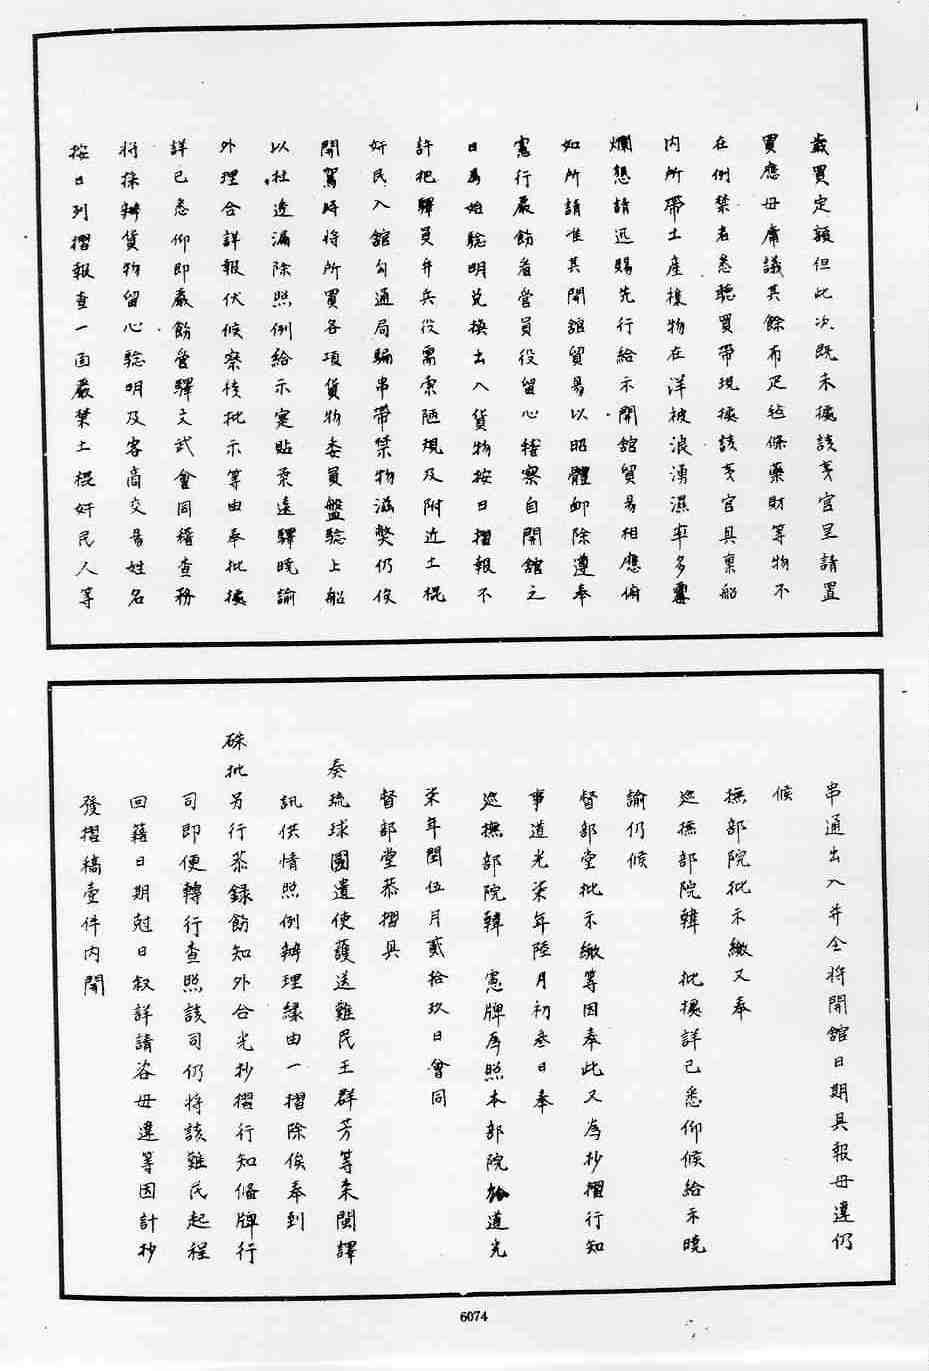 嚴買定額但此次既未據該夷官呈請置
買應毋庸議其餘布疋毡條藥財等物不
在例禁者悉聽買帶現據該夷官具稟船
內所帶土產棟物在洋被浪湧濕率多霉
爛懇請迅賜先行給示開舘貿易相應俯
如所請准其開舘貿易以昭體卹除遵奉
憲行嚴飭看營員役留心稽察自開舘之
日為始驗明兌換出入貨物按日摺報不
許把驛員弁兵役需索陋規及附近土棍
奸民入舘勾通局騙串帶禁物滋弊仍俟
開駕時將所買各項貨物委員盤驗上船
以杜透漏除照例給示寔貼柔遠驛曉諭
外理合詳報伏候察核批示等由奉批據
詳已悉仰即嚴飭營驛文武會同稽查務
將採辦貨物留心驗明及客商交易姓名
按日列摺報查一面嚴禁土棍奸民人等
串通出入并仝將開舘日期具報毋違仍
候
撫部院批示繳又奉
巡撫部院韓 批據詳已悉仰候給示曉
諭仍候
督部堂批示繳等因奉此又為抄摺行知
事道光柒年陸月初叁日奉
巡撫部院韓 憲牌為照本部院於道光
柒年閏伍月貳拾玖日會同
督部堂恭摺具
奏琉球國遣使護送難民王群芳等来閩譯
訊供情照例辦理緣由一摺除俟奉到
硃批另行恭錄飭知外合先抄摺行知備牌行
司即便轉行查照該司仍將該難民起程
回籍日期尅日叙詳請咨毋違等因計抄
發摺稿壹件内開
6074